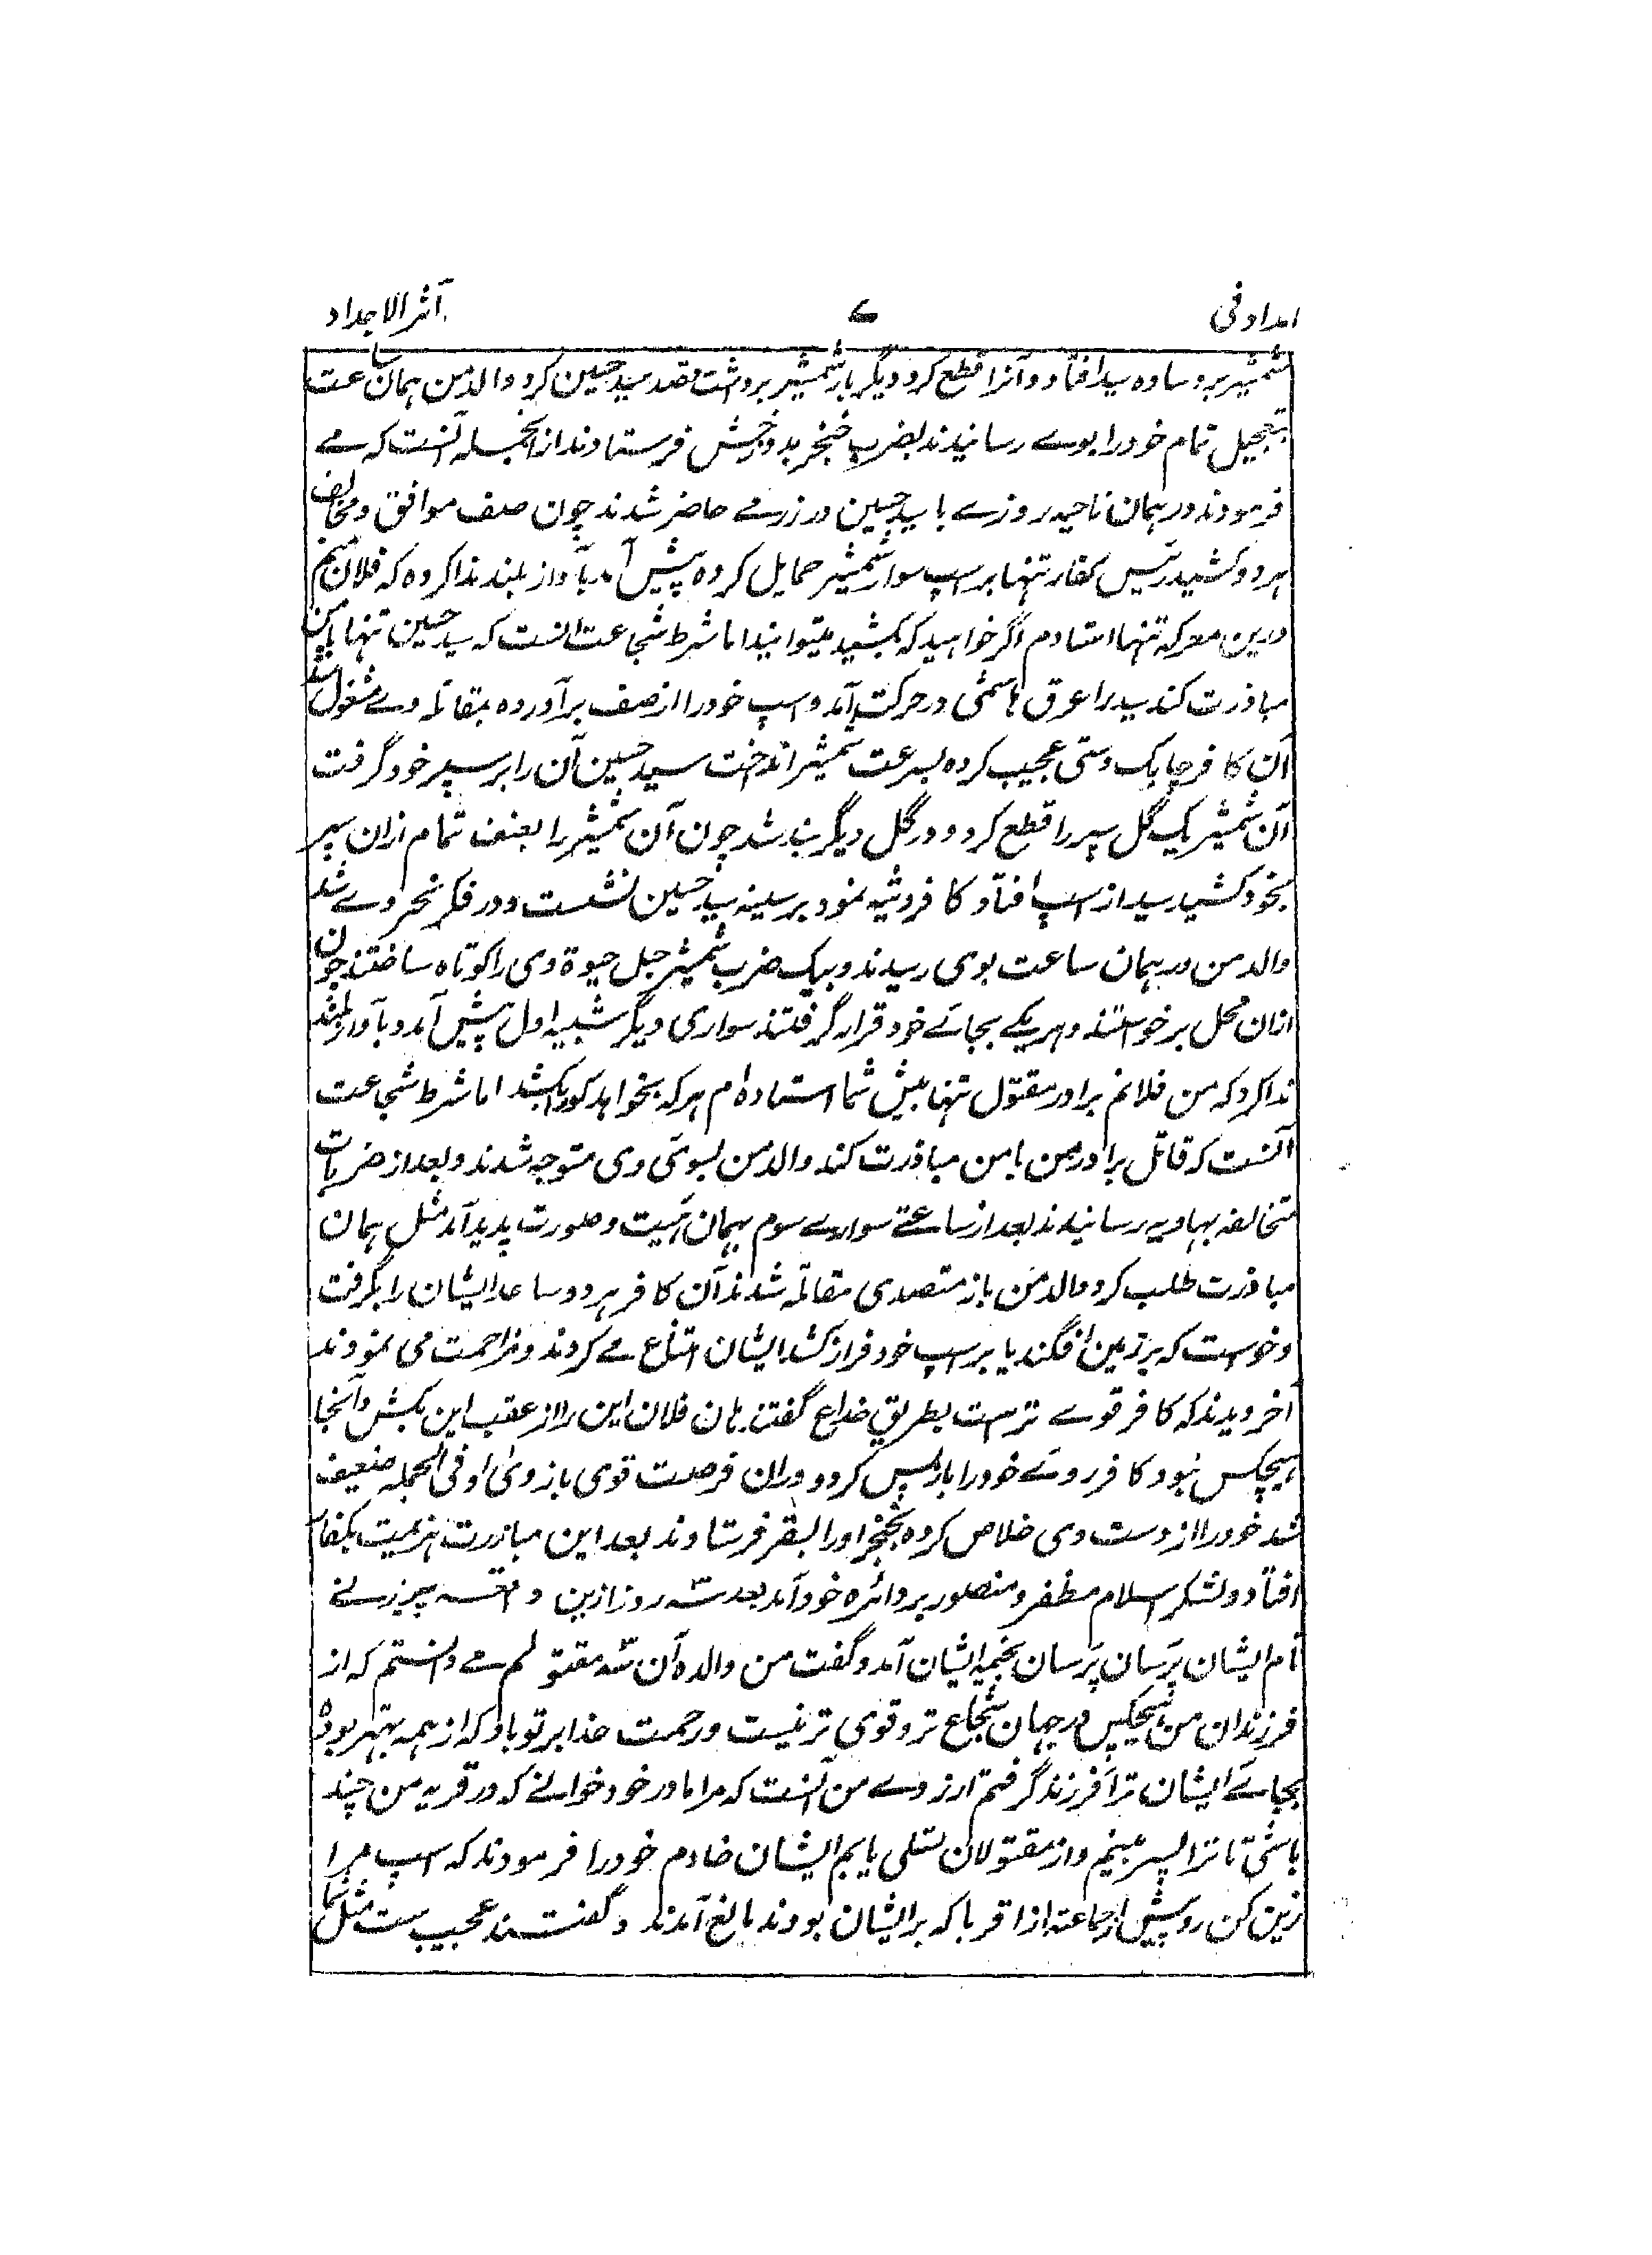 امداد فی
۷
مآثر الاجداد
شمشیر بر وساده سید افتاد و آنرا قطع کرد دیگر بار شمشیر برداشت قصد سید حسین کرد والد من ہمان ساعت
بتعجیل تمام خود را بوے رسانیدند بضرب خنجر بدوزخش فرستادند از انجملہ آنست کہ مے
فرمودند در ہمان ناحیہ روزے با سید حسین در رزمے حاضر شدند چون صف موافق و مخالف
ہر دو کشید رئیس کفار تنہا بر اسپ سوار شمشیر حمایل کردہ پیش آمد بآواز بلند ندا کردہ کہ فلان منم
درین معرکہ تنہا استادم اگر خواہید کہ بکشید میتوانید اما شرط شجاعت انست کہ سید حسین تنہا با من
مبادرت کند سید را عرق ہاشمی در حرکت آمد و اسپ خود را از صف برآوردہ بمقاتلہ وے مشغول شد
آن کافر چابک دستی عجیب کردہ بسرعت شمشیر انداخت سید حسین آن را بر سپر خود گرفت
آن شمشیر یک گل سپر را قطع کرد و در گل دیگر بند شد چون آن شمشیر را بعنف تمام ازان سپر
بخود کشید سید از اسپ افتاد کافر وثبہ نمود بر سینہ سید حسین نشست و در فکر نحر وے شد
والد من در ہمان ساعت بوی رسیدند و بیک ضرب شمشیر حبل حیوة وی را کوتاہ ساختند چون
ازان محل برخواستند و ہر یکے بجائے خود قرار گرفتند سواری دیگر شبیہ اول پیش آمد و بآواز بلند
ندا کرد کہ من فلانم برادر مقتول تنہا پیش شما استادہ ام ہر کہ بخواہد کو مرا بکشد اما شرط شجاعت
آنست کہ قاتل برادر من با من مبادرت کند والد من بسوئی وی متوجہ شدند و بعد از ضربات
متخالفہ بہاویہ رسانیدند بعد از ساعتے سوارے سوم بہمان ہئیت و صورت پدید آمد مثل ہمان
مبادرت طلب کرد والد من باز متصدی مقاتلہ شدند آن کافر ہر دو ساعد ایشان را بگرفت
و خواست کہ بر زمین افگند یا بر اسپ خود فراز کشد ایشان امتناع مے کردند و مزاحمت می نمودند
آخر دیدند کہ کافر قوے تر است بطریق خداع گفتند ہان فلان این را از عقب این بکش و آنجا
ہیچکس نبود کافر روئے خود را باز پس کرد و دران فرصت قوی بازوئ او فی الجملہ ضعیف
شد خود را از دست وی خلاص کردہ بخنجر او را بسقر فرستادند بعد این مبادرت ہزیمت بکفار
افتاد و لشکر اسلام مظفر و منصور بر دائرہ خود آمد بعد سہ روز ازین واقعہ پیر زنے
نام ایشان پرسان پرسان بخیمہ ایشان آمد و گفت من والدہ آن سہ مقتولم مے دانستم کہ از
فرزندان من ہیچکس در جہان شجاع تر و قوی تر نیست و رحمت خدا بر تو باد کہ از ہمہ بہتر بودی
بجائے ایشان ترا فرزند گرفتم آرزوے من آنست کہ مرا مادر خود خوانے کہ در قریہ من چند
باشی تا ترا سیر بینم و از مقتولان تسلی یابم ایشان خادم خود را فرمودند کہ اسپ مرا
زین کن رو پیش از جماعتہ از اقربا کہ برایشان بودند مانع آمدند و گفتند عجیب ست مثل شما